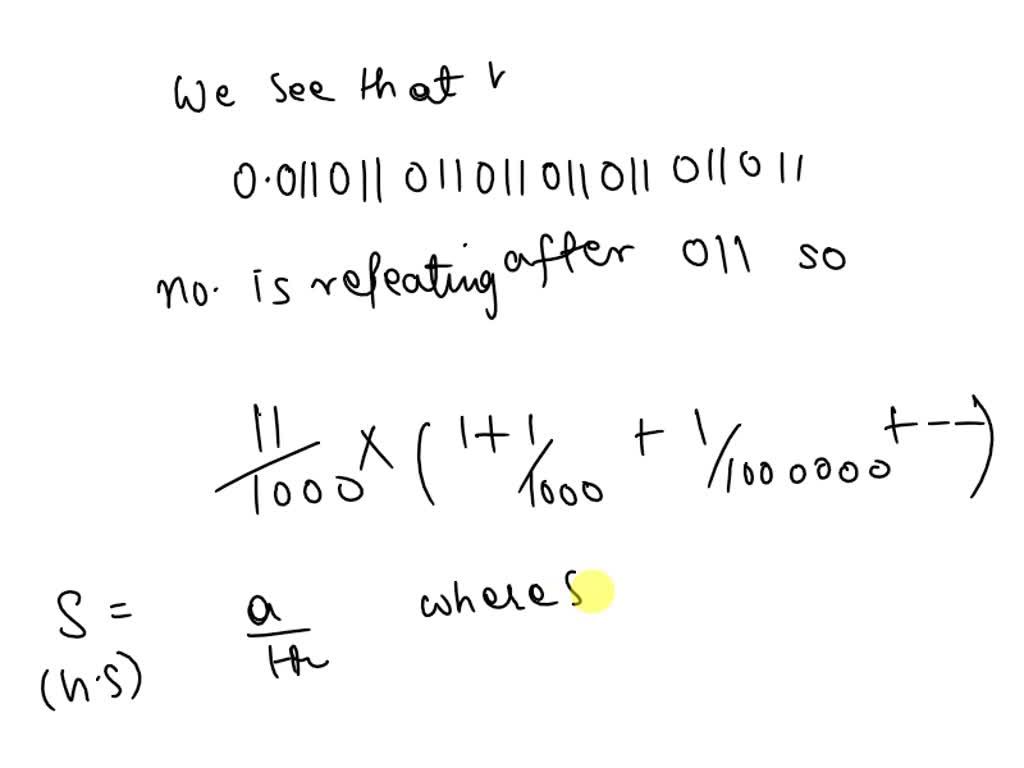 We see that
0.011011 011011 011011 011011
no. is repeating after 011 so
11/1000 × (1 + 1/1000 + 1/1000000 + ---)
S = a/1-r where S
(h.S)